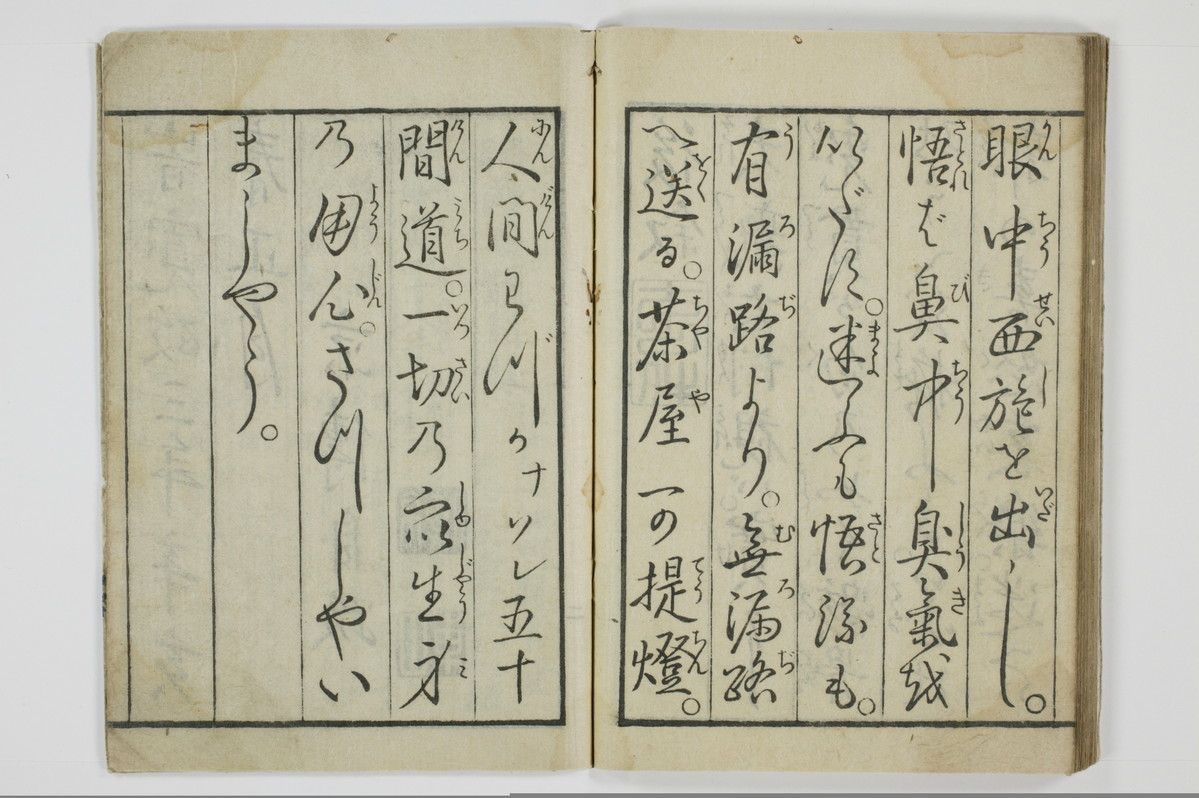 眼中西施を出し。
悟れば鼻中臭氣を
いだす。迷ふも悟るも。
有漏路より。無漏路
へ送る。茶屋一の提燈。
人間わづカナソレ五十
間道。一切の衆生身
の用心。さつしやい
ましやう。